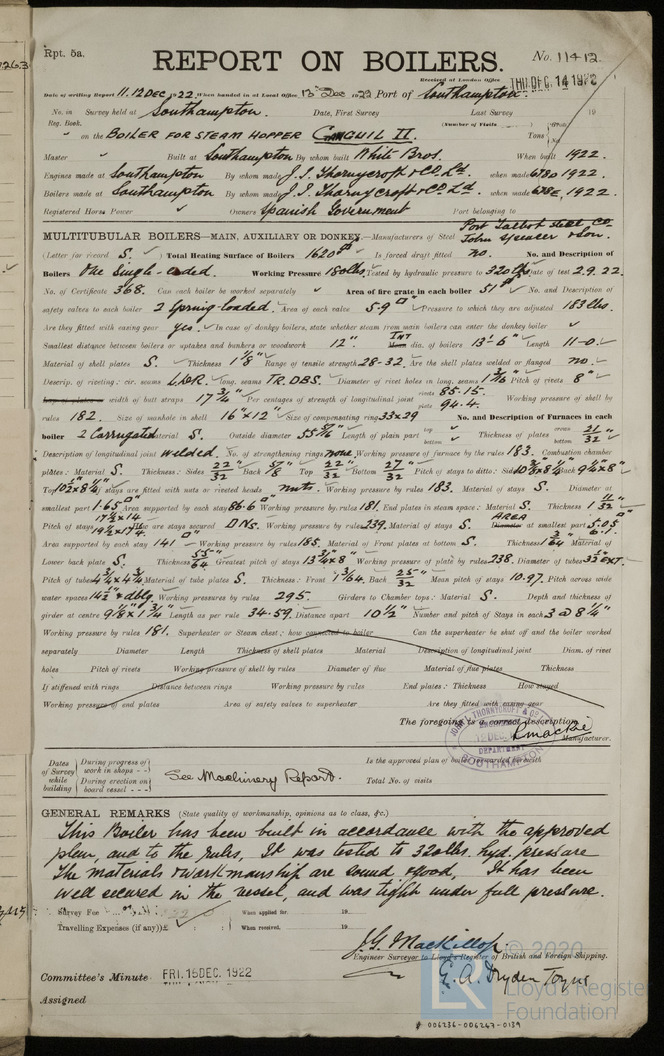 Rpt. 5a.
REPORT ON BOILERS.
No. 11412
Received at London Office THU. DEC. 14 1922
Date of writing Report 11.12 DEC 1922 When handed in at Local Office 13 Dec 1922 Port of Southampton.
No. in Survey held at Southampton. Date, First Survey Last Survey 19
Reg. Book. (Number of Visits )
on the BOILER FOR STEAM HOPPER II. Tons
Master Built at Southampton By whom built White Bros. When built 1922.
Engines made at Southampton By whom made J. I. Thornycroft & Co Ld. when made 1922.
Boilers made at Southampton By whom made J. I. Thornycroft & Co. Ld. when made 1922.
Registered Horse Power Owners Spanish Government Port belonging to
MULTITUBULAR BOILERS—MAIN, AUXILIARY OR DONKEY.—Manufacturers of Steel Port Talbot Steel Co. John Spencer & Son.
(Letter for record S.) Total Heating Surface of Boilers 1620 Is forced draft fitted no. No. and Description of
Boilers One Single-ended. Working Pressure 180 lbs. Tested by hydraulic pressure to 320 lbs Date of test 2.9.22.
No. of Certificate 368. Can each boiler be worked separately Area of fire grate in each boiler 51 No. and Description of
safety valves to each boiler 2 Spring-loaded. Area of each valve 5.9 Pressure to which they are adjusted 183 lbs.
Are they fitted with easing gear yes. In case of donkey boilers, state whether steam from main boilers can enter the donkey boiler
Smallest distance between boilers or uptakes and bunkers or woodwork 12" Int dia. of boilers 13'-6" Length 11-0.
Material of shell plates S. Thickness 1 1/8" Range of tensile strength 28-32. Are the shell plates welded or flanged no.
Descrip. of riveting: cir. seams L.D.R. long. seams TR.DBS. Diameter of rivet holes in long. seams 1 3/16 Pitch of rivets 8"
width of butt straps 17 3/4" Per centages of strength of longitudinal joint rivets 85.15. plate 94.4. Working pressure of shell by
rules 182. Size of manhole in shell 16"x12" Size of compensating ring 33x29 No. and Description of Furnaces in each
boiler 2 Corrugated Material S. Outside diameter Length of plain part top bottom Thickness of plates crown bottom 21/32"
Description of longitudinal joint welded. No. of strengthening rings none Working pressure of furnace by the rules 183. Combustion chamber
plates: Material S. Thickness: Sides 22/32 Back Top 22/32" Bottom 27/32 Pitch of stays to ditto: Sides Back 9 1/4"x8"
Top 10 1/2x8 1/4 If stays are fitted with nuts or riveted heads nuts. Working pressure by rules 183. Material of stays S. Diameter at
smallest part 1.65 Area supported by each stay 86.6 Working pressure by rules 181. End plates in steam space: Material S. Thickness
Pitch of stays How are stays secured D.N.S. Working pressure by rules 239. Material of stays S. AREA at smallest part 5.05 6.1.
Area supported by each stay 141 Working pressure by rules 185. Material of Front plates at bottom S. Thickness Material of
Lower back plate S. Thickness 55/64 Greatest pitch of stays 13 3/4 x 8" Working pressure of plate by rules 238. Diameter of tubes EXT.
Pitch of tubes 4 3/4x4 3/4 Material of tube plates S. Thickness: Front Back 25/32 Mean pitch of stays 10.97. Pitch across wide
water spaces 14 1/2" & dblg. Working pressures by rules 295. Girders to Chamber tops: Material S. Depth and thickness of
girder at centre 9 1/8"x1 3/4" Length as per rule 34.59. Distance apart 10 1/2" Number and pitch of Stays in each 3 @ 8 1/4"
Working pressure by rules 181. Superheater or Steam chest; how connected to boiler Can the superheater be shut off and the boiler worked
separately Diameter Length Thickness of shell plates Material Description of longitudinal joint Diam. of rivet
holes Pitch of rivets Working pressure of shell by rules Diameter of flue Material of flue plates Thickness
If stiffened with rings Distance between rings Working pressure by rules End plates: Thickness How stayed
Working pressure of end plates Area of safety valves to superheater Are they fitted with easing gear
The foregoing is a correct description,
JOHN I. THORNYCROFT & CO.
DEPARTMENT
SOUTHAMPTON
Manufacturer.
Dates of Survey while building
During progress of work in shops - -
During erection on board vessel - - -
See Machinery Report.
Is the approved plan of boiler forwarded herewith
Total No. of visits
GENERAL REMARKS (State quality of workmanship, opinions as to class, &c.)
This Boiler has been built in accordance with the approved
plan, and to the rules, It was tested to 320 lbs. hyd. pressure
The materials & workmanship are sound & good, It has been
well secured in the vessel, and was tight under full pressure.
Survey Fee When applied for. 19
Travelling Expenses (if any) £ When received. 19
J. G. MacKillop
Engineer Surveyor to Lloyd's Register of British and Foreign Shipping.
Committee's Minute FRI. 15 DEC. 1922
Assigned
© 2020
LR
Lloyd's Register
Foundation
006236-006247-0139